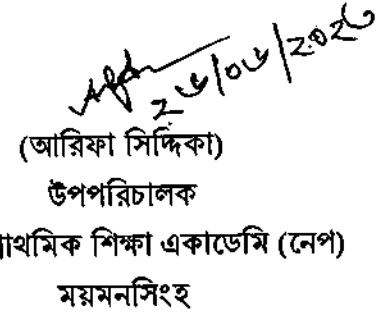 ২৬/০৬/২০২৩
(আরিফা সিদ্দিকা)
উপপরিচালক
প্রাথমিক শিক্ষা একাডেমি (নেপ)
ময়মনসিংহ